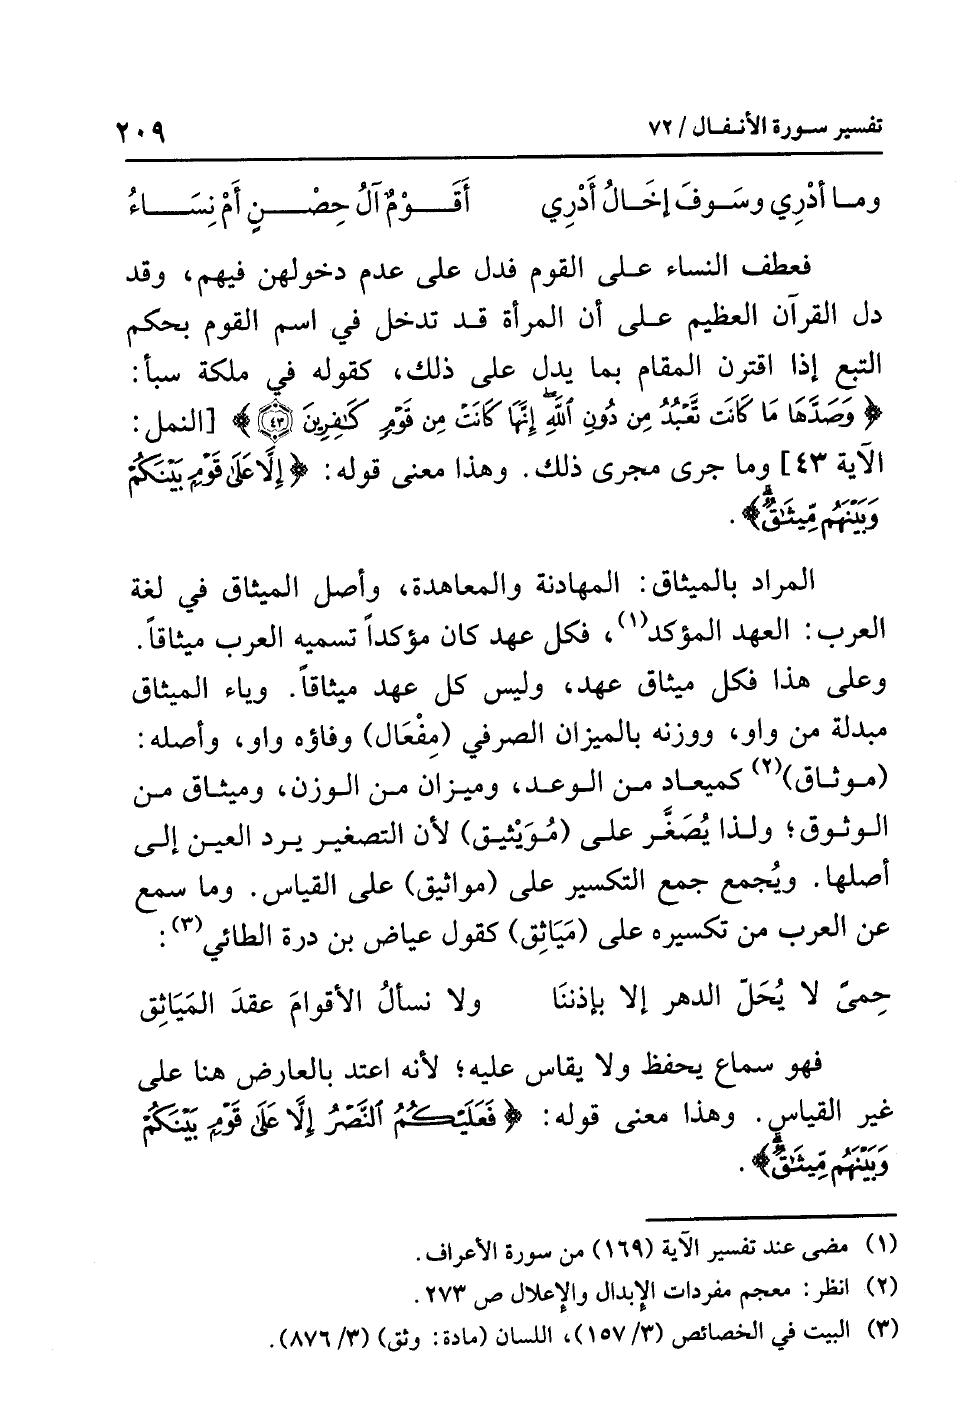 تفسير سورة الأنفال / ٧٢
٢٠٩
وما أدْرِي وسَوفَ إخَالُ أَدْرِي أَقَوْمٌ آلُ حِصْنٍ أَمْ نِسَاءُ
فعطف النساء على القوم فدل على عدم دخولهن فيهم، وقد
دل القرآن العظيم على أن المرأة قد تدخل في اسم القوم بحكم
التبع إذا اقترن المقام بما يدل على ذلك، كقوله في ملكة سبأ:
﴿ وَصَدَّهَا مَا كَانَت تَّعْبُدُ مِن دُونِ ٱللَّهِۖ إِنَّهَا كَانَتْ مِن قَوْمٍ كَٰفِرِينَ ٤٣ ﴾ [النمل:
الآية ٤٣] وما جرى مجرى ذلك. وهذا معنى قوله: ﴿ إِلَّا عَلَىٰ قَوْمٍ بَيْنَكُمْ
وَبَيْنَهُم مِّيثَٰقٌۗ﴾ .
المراد بالميثاق: المهادنة والمعاهدة، وأصل الميثاق في لغة
العرب: العهد المؤكد(١)، فكل عهد كان مؤكداً تسميه العرب ميثاقاً.
وعلى هذا فكل ميثاق عهد، وليس كل عهد ميثاقاً. وياء الميثاق
مبدلة من واو، ووزنه بالميزان الصرفي (مِفْعَال) وفاؤه واو، وأصله:
(موثاق)(٢) كميعاد من الوعد، وميزان من الوزن، وميثاق من
الوثوق؛ ولذا يُصَغَّر على (مُوَيْثيق) لأن التصغير يرد العين إلى
أصلها. ويُجمع جمع التكسير على (مواثيق) على القياس. وما سمع
عن العرب من تكسيره على (مَيَاثِق) كقول عياض بن درة الطائي(٣):
حِمىً لا يُحَلّ الدهر إلا بإذننَا ولا نسألُ الأقوامَ عقدَ المَيَاثِقِ
فهو سماع يحفظ ولا يقاس عليه؛ لأنه اعتد بالعارض هنا على
غير القياس. وهذا معنى قوله: ﴿ فَعَلَيْكُمُ ٱلنَّصْرُ إِلَّا عَلَىٰ قَوْمٍ بَيْنَكُمْ
وَبَيْنَهُم مِّيثَٰقٌۗ﴾ .
(١) مضى عند تفسير الآية (١٦٩) من سورة الأعراف.
(٢) انظر: معجم مفردات الإبدال والإعلال ص ٢٧٣.
(٣) البيت في الخصائص (٣/ ١٥٧)، اللسان (مادة: وثق) (٣/ ٨٧٦).